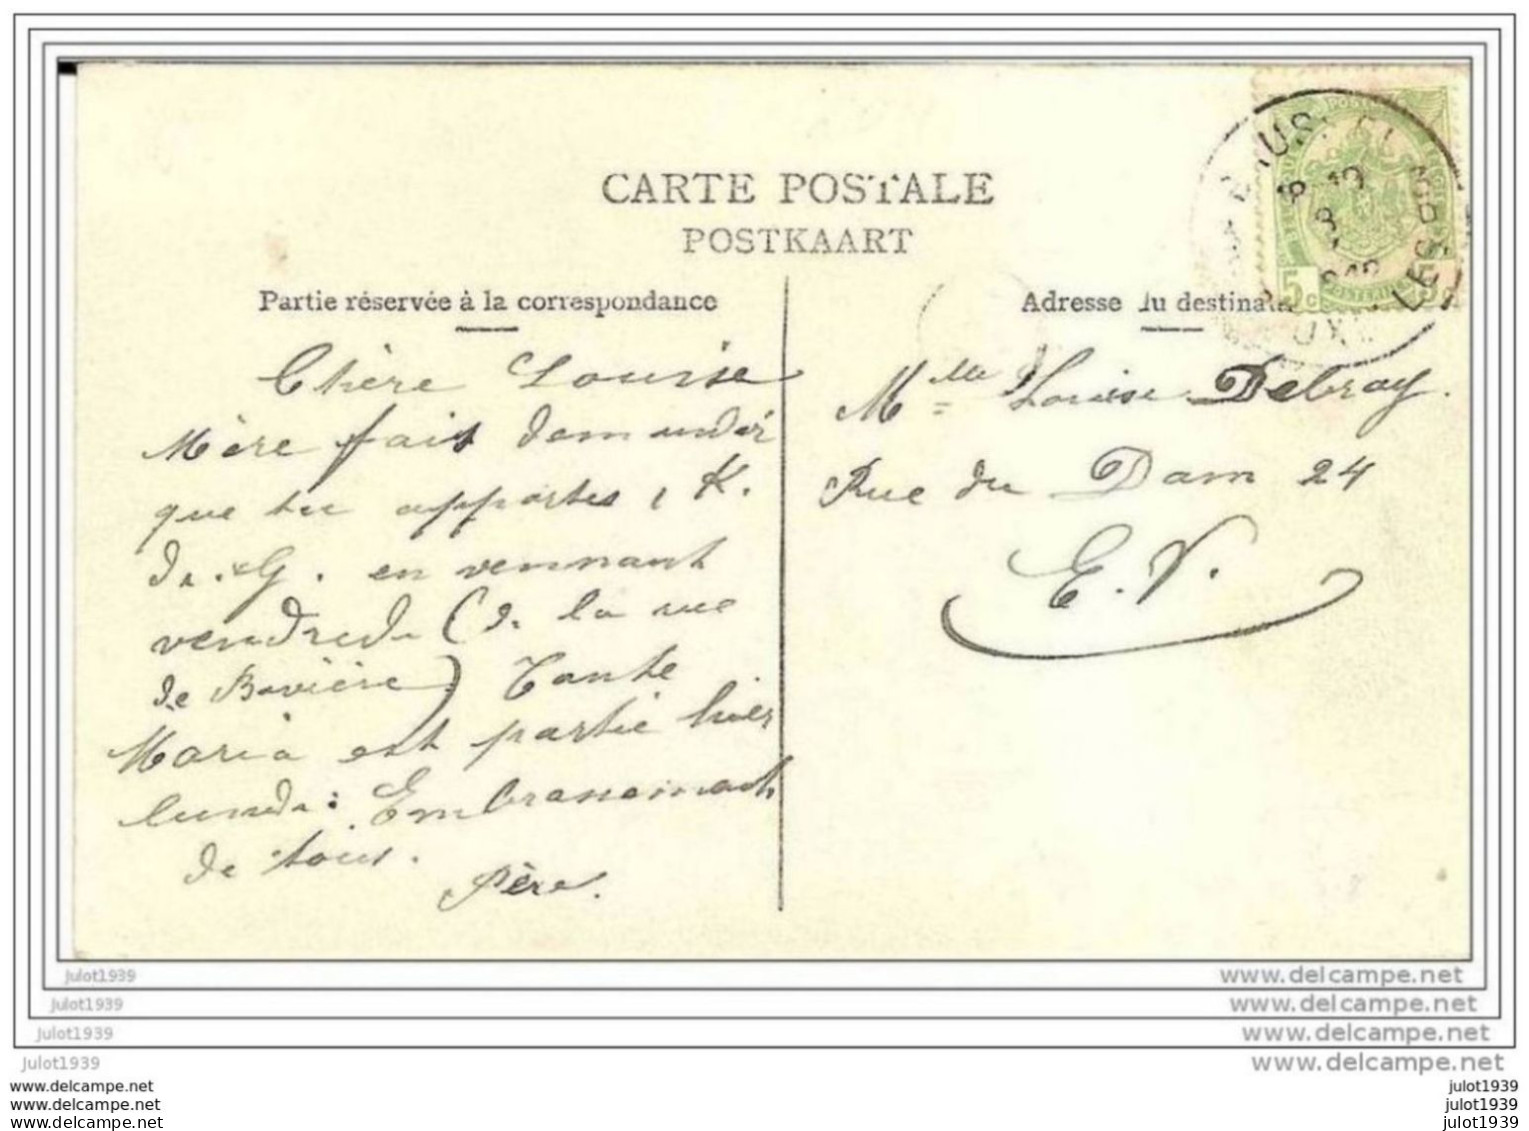 CARTE POSTALE
POSTKAART
Partie réservée à la correspondance
Adresse du destinata
Chère Louise
Mère fait demander
que tu apportes 1 K.
de G. en vennant
vendredi (de la rue
de Bavière) Tante
Maria est partie hier
lundi. Embrassements
de tous.
Père.
Mlle Louise Debray.
Rue du Dam 24
E. V.
5c
julot1939
www.delcampe.net
julot1939
www.delcampe.net
julot1939
www.delcampe.net
julot1939
www.delcampe.net
www.delcampe.net
julot1939
www.delcampe.net
julot1939
www.delcampe.net
julot1939